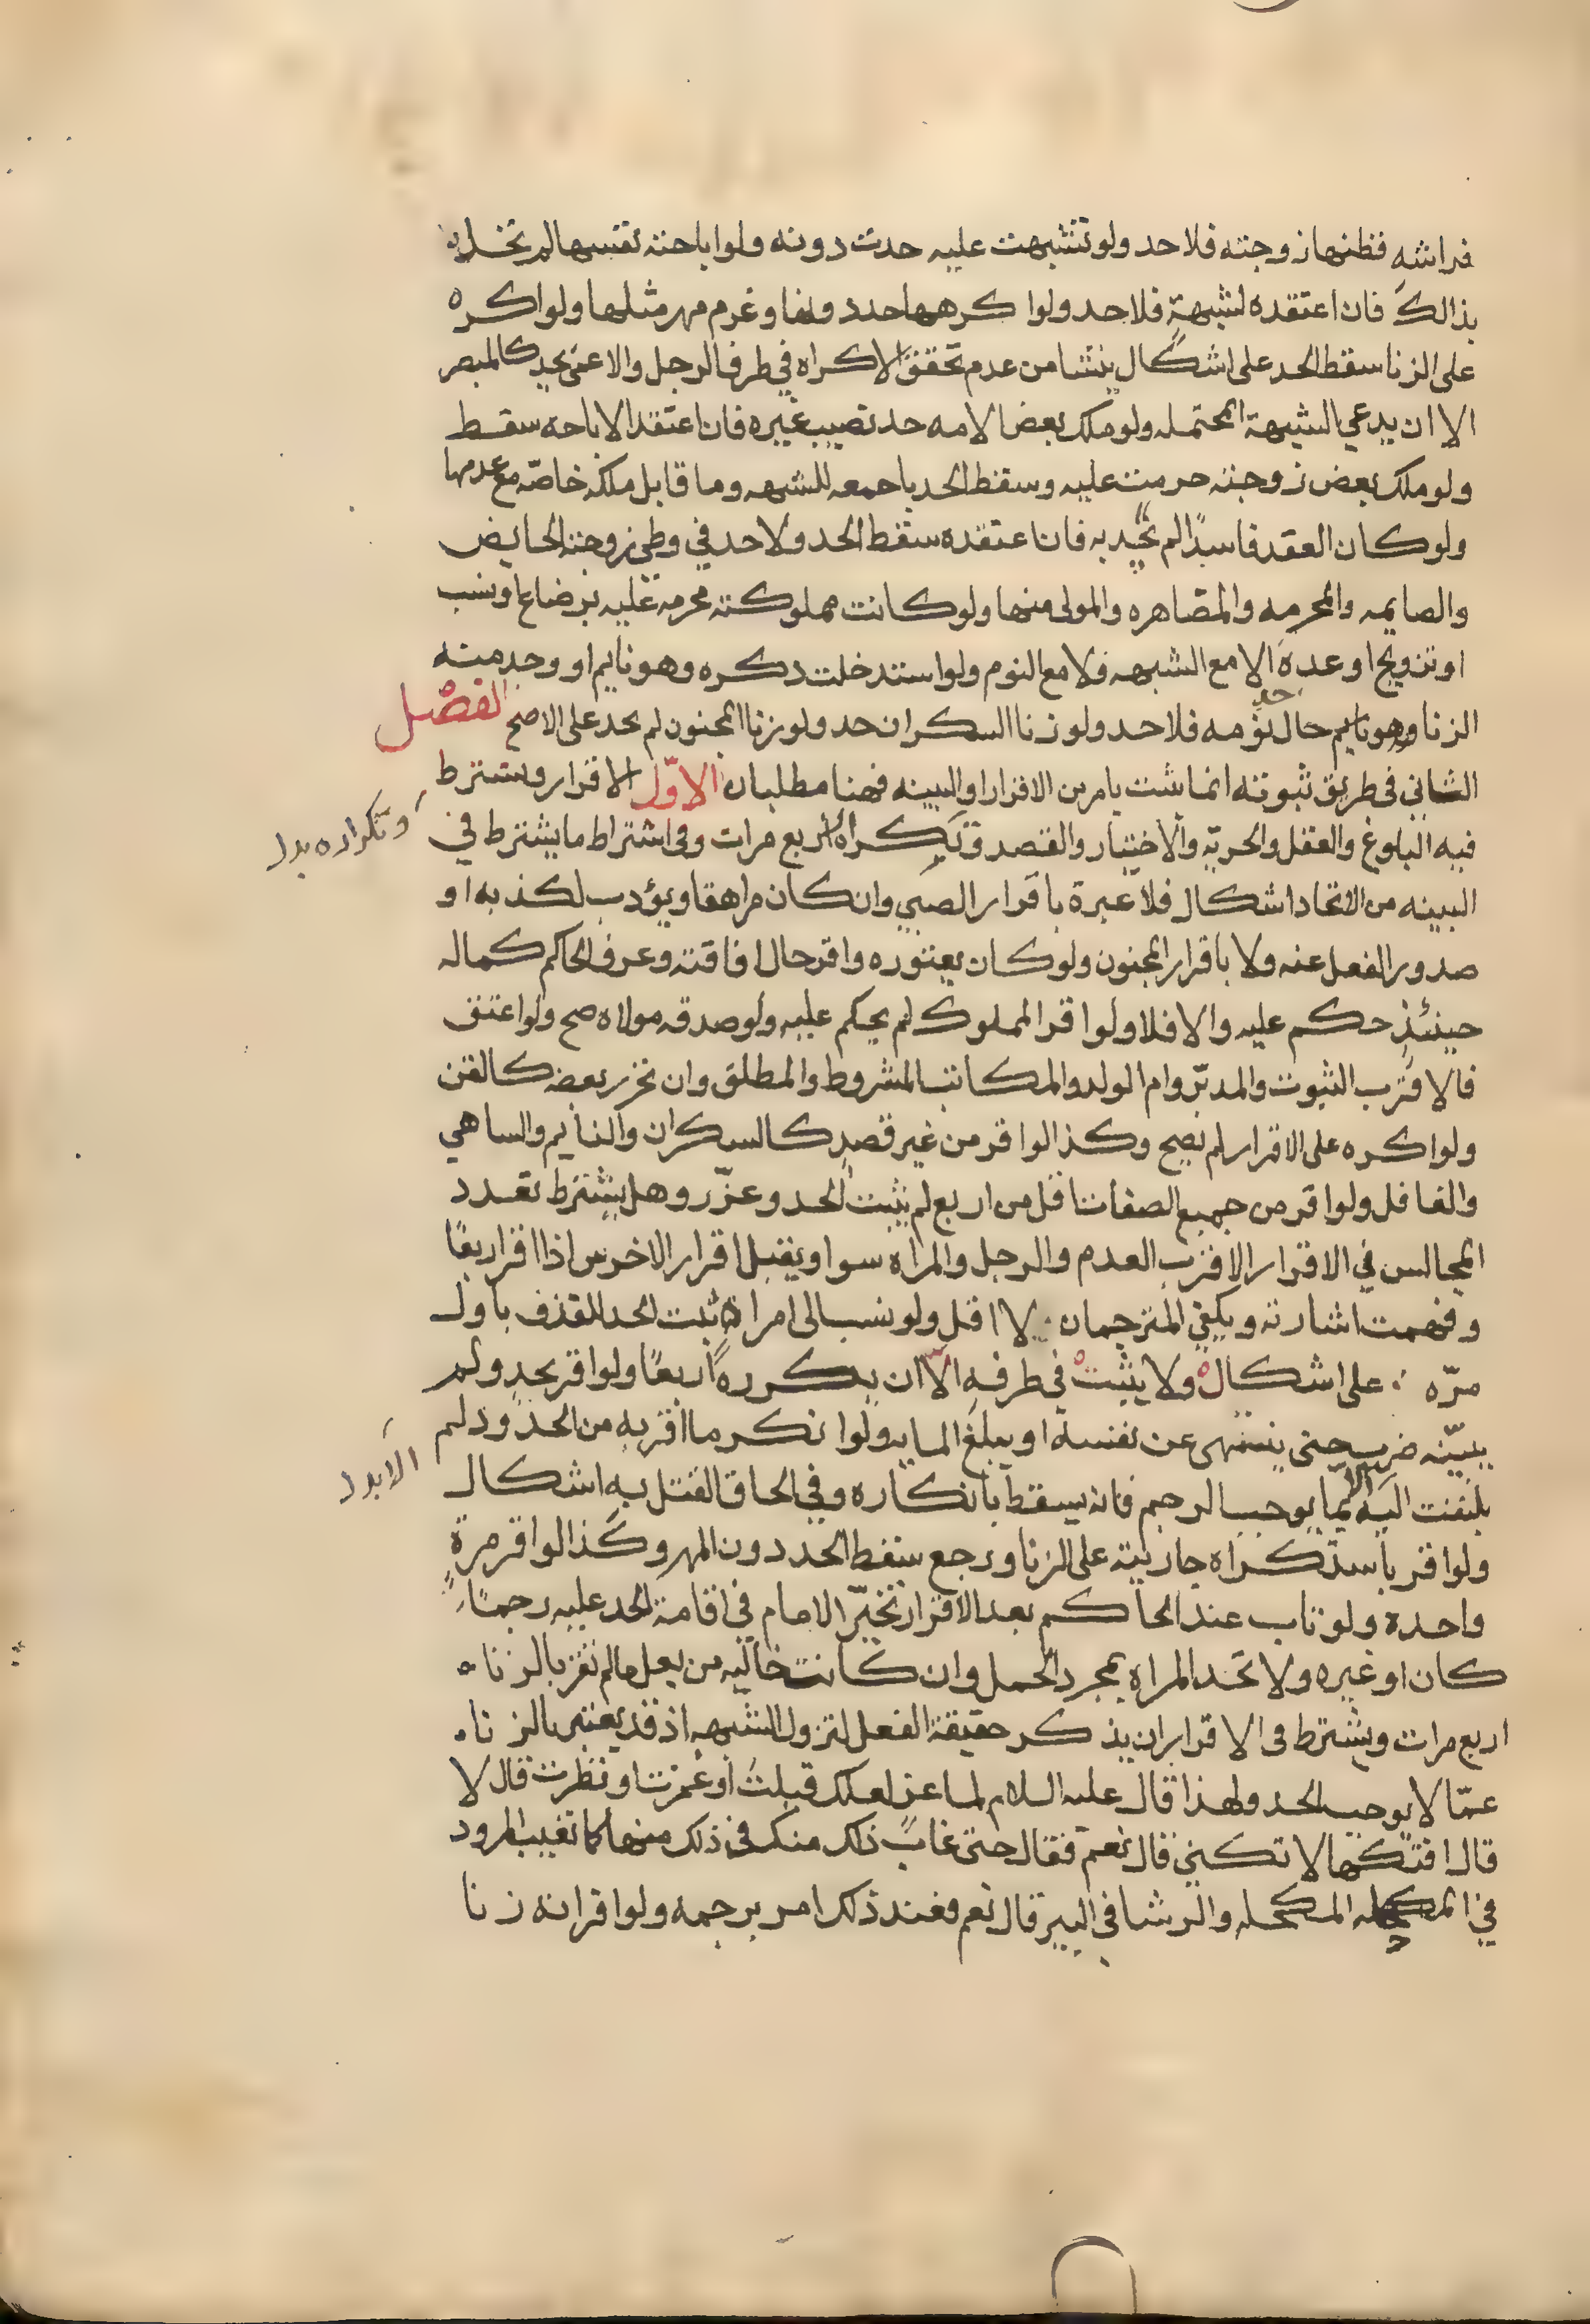 فراشه فظنها زوجته فلا حد ولو تشبهت عليه حدت دونه ولو اباحته نفسها لم تحل له
بذالك فان اعتقده لشبهة فلا حد ولو اكرهها حدد ونها وغرم مهر مثلها ولو اكره
على الزنا سقط الحد على اشكال ينشا من عدم تحقق الاكراه في طرف الرجل والاعمى يحد كالمبصر
الا ان يدعي الشبهة المحتمله ولو ملك بعض الامه حد نصيب غيره فان اعتقد الاباحه سقط
ولو ملك بعض زوجته حرمت عليه وسقط الحد باجمعه للشبهه وما قابل ملكه خاصّه مع عدمها
ولو كان العقد فاسدًا لم يحد به فان اعتقده سقط الحد ولا حد في وطي زوجته الحايض
والصايمه والمحرمه والمضاهره والمولى منها ولو كانت مملوكته محرمه عليه برضاع او نسب
او تزويج او عدة الا مع الشبهه فلا مع النوم ولو استدخلت ذكره وهو نايم او وجد منه
الزنا وهو نايم حال نومه فلا حد ولو زنا السكران حد ولو زنا المجنون لم يحد على الاصح الفصل
الثاني في طريق ثبوته انما يثبت بامرين الاقرار او البينه فهنا مطلبان الاوّل الاقرار ويشترط
فيه البلوغ والعقل والحريّه والاختيار والقصد وتكراره اربع مرات وفي اشتراط ما يشترط في
وتكراره بدل
البينه من الاتحاد اشكال فلا عبرة باقرار الصبي وان كان مراهقا ويؤدب لكذبه او
صدور الفعل عنه ولا باقرار المجنون ولو كان يعتوره واقر حال افاقته وعرف الحاكم كماله
حينئذ حكم عليه والا فلا ولو اقر المملوك لم يحكم عليه ولو صدقه مولاه صح ولو اعتق
فالاقرب الثبوت والمدبّر وام الولد والمكاتب المشروط والمطلق وان تحرر بعضه كالقن
ولو اكره على الاقرار لم يصح وكذا لو اقر من غير قصد كالسكران والنايم والساهي
والغافل ولو اقر من جميع الصفات اقل من اربع لم يثبت الحد وعزّر وهل يشترط تعدد
المجالس في الاقرار الاقرب العدم والرجل والمراه سوا ويقبل اقرار الاخرس اذا اقر اربعًا
وفهمت اشارته ويكفي المترجمان لا اقل ولو نسب الى امراة ثبت الحد للقذف باول
مرّه على اشكال ولا يثبت في طرفه الا ان يكرره اربعًا ولو اقر بحد ولم
يبيّنه ضرب حتى ينتهي عن نفسه او يبلغ المايه ولو انكر ما اقر به من الحدود لم
يلتفت اليه الا بما يوجب الرجم فانه يسقط بانكاره وفي الحاق القتل به اشكال
الا بدل
ولو اقر باستكراه جاريته على الزنا ورجع سقط الحد دون المهر وكذا لو اقر مرة
واحدة ولو تاب عند الحاكم بعد الاقرار تخيّر الامام في اقامة الحد عليه رجمًا
كان او غيره ولا تحد المراه بمجرد الحمل وان كانت خاليه من بعل ما لم تقر بالزنا
اربع مرات ويشترط في الاقرار ان يذكر حقيقة الفعل لتزول الشبهه اذ قد يعبر بالزنا
عمّا لا يوجب الحد ولهذا قال عليه السلام لماعز لعلك قبلت او غمزت او نظرت قال لا
قال افنكتها لا تكني قال نعم فقال حتى غاب ذلك منك في ذلك منها كما تغيب المرود
في المكحله والرشا في البير قال نعم فعند ذلك امر برجمه ولو اقر انه زنا